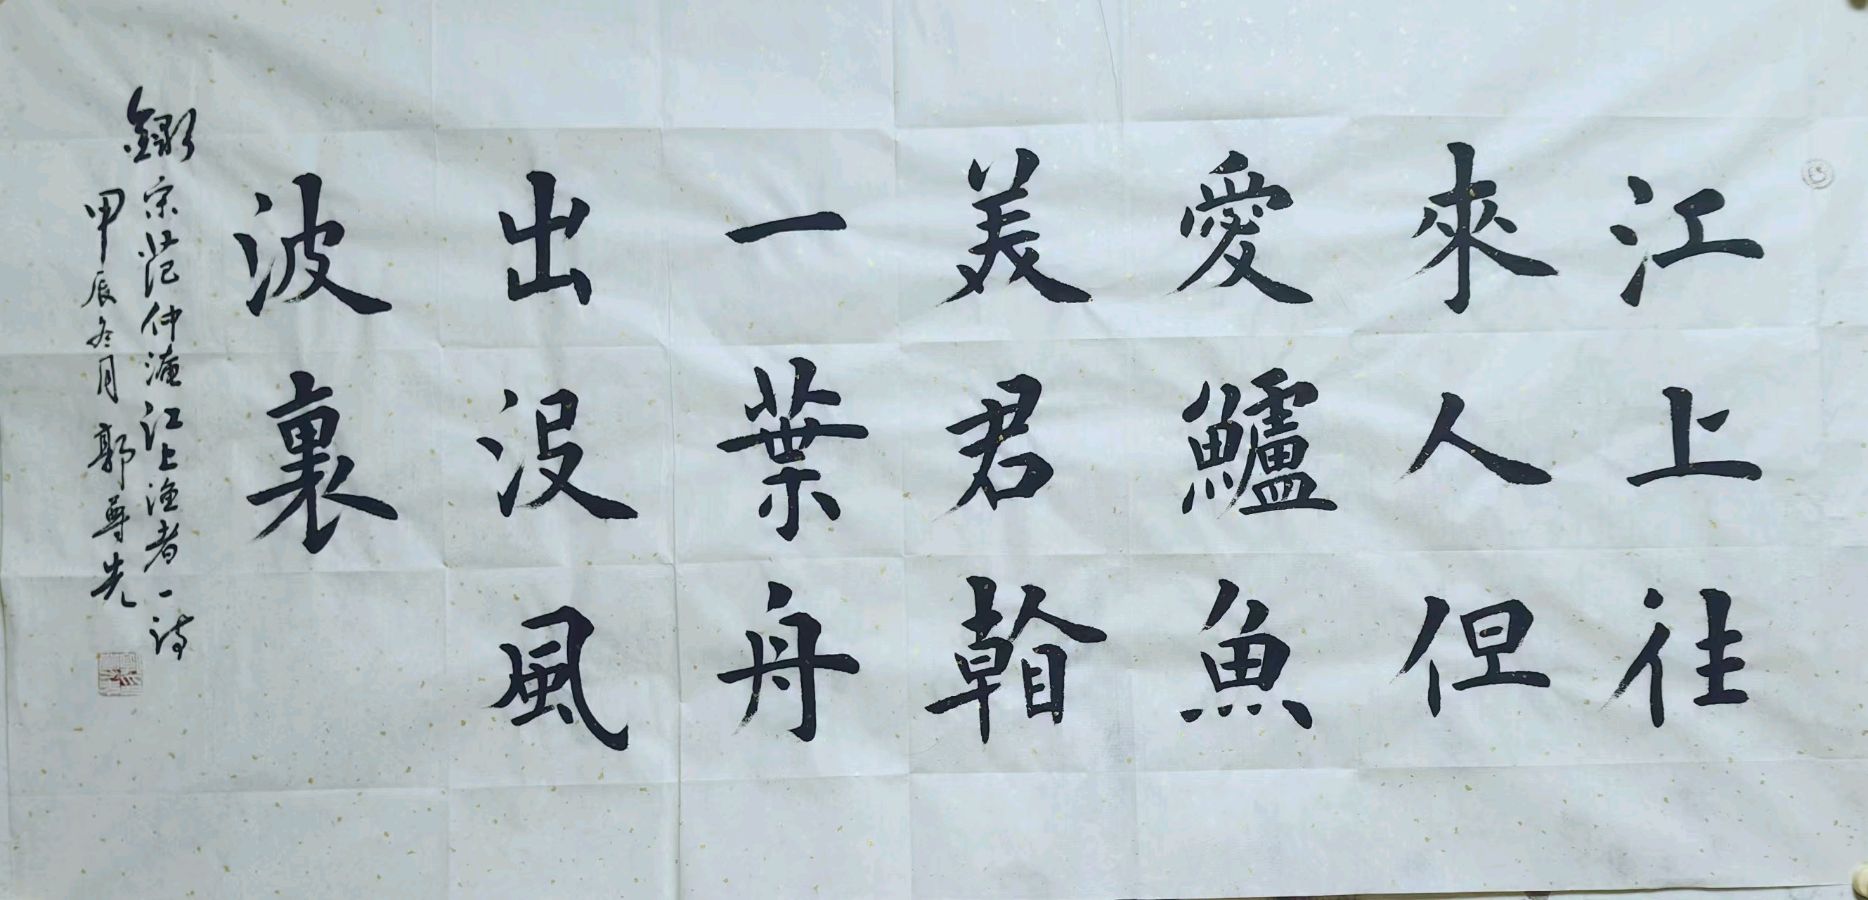 江上往
來人但
愛鱸魚
美君看
一葉舟
出没風
波裏
錄宋范仲淹江上漁者一詩
甲辰冬月郭尊先